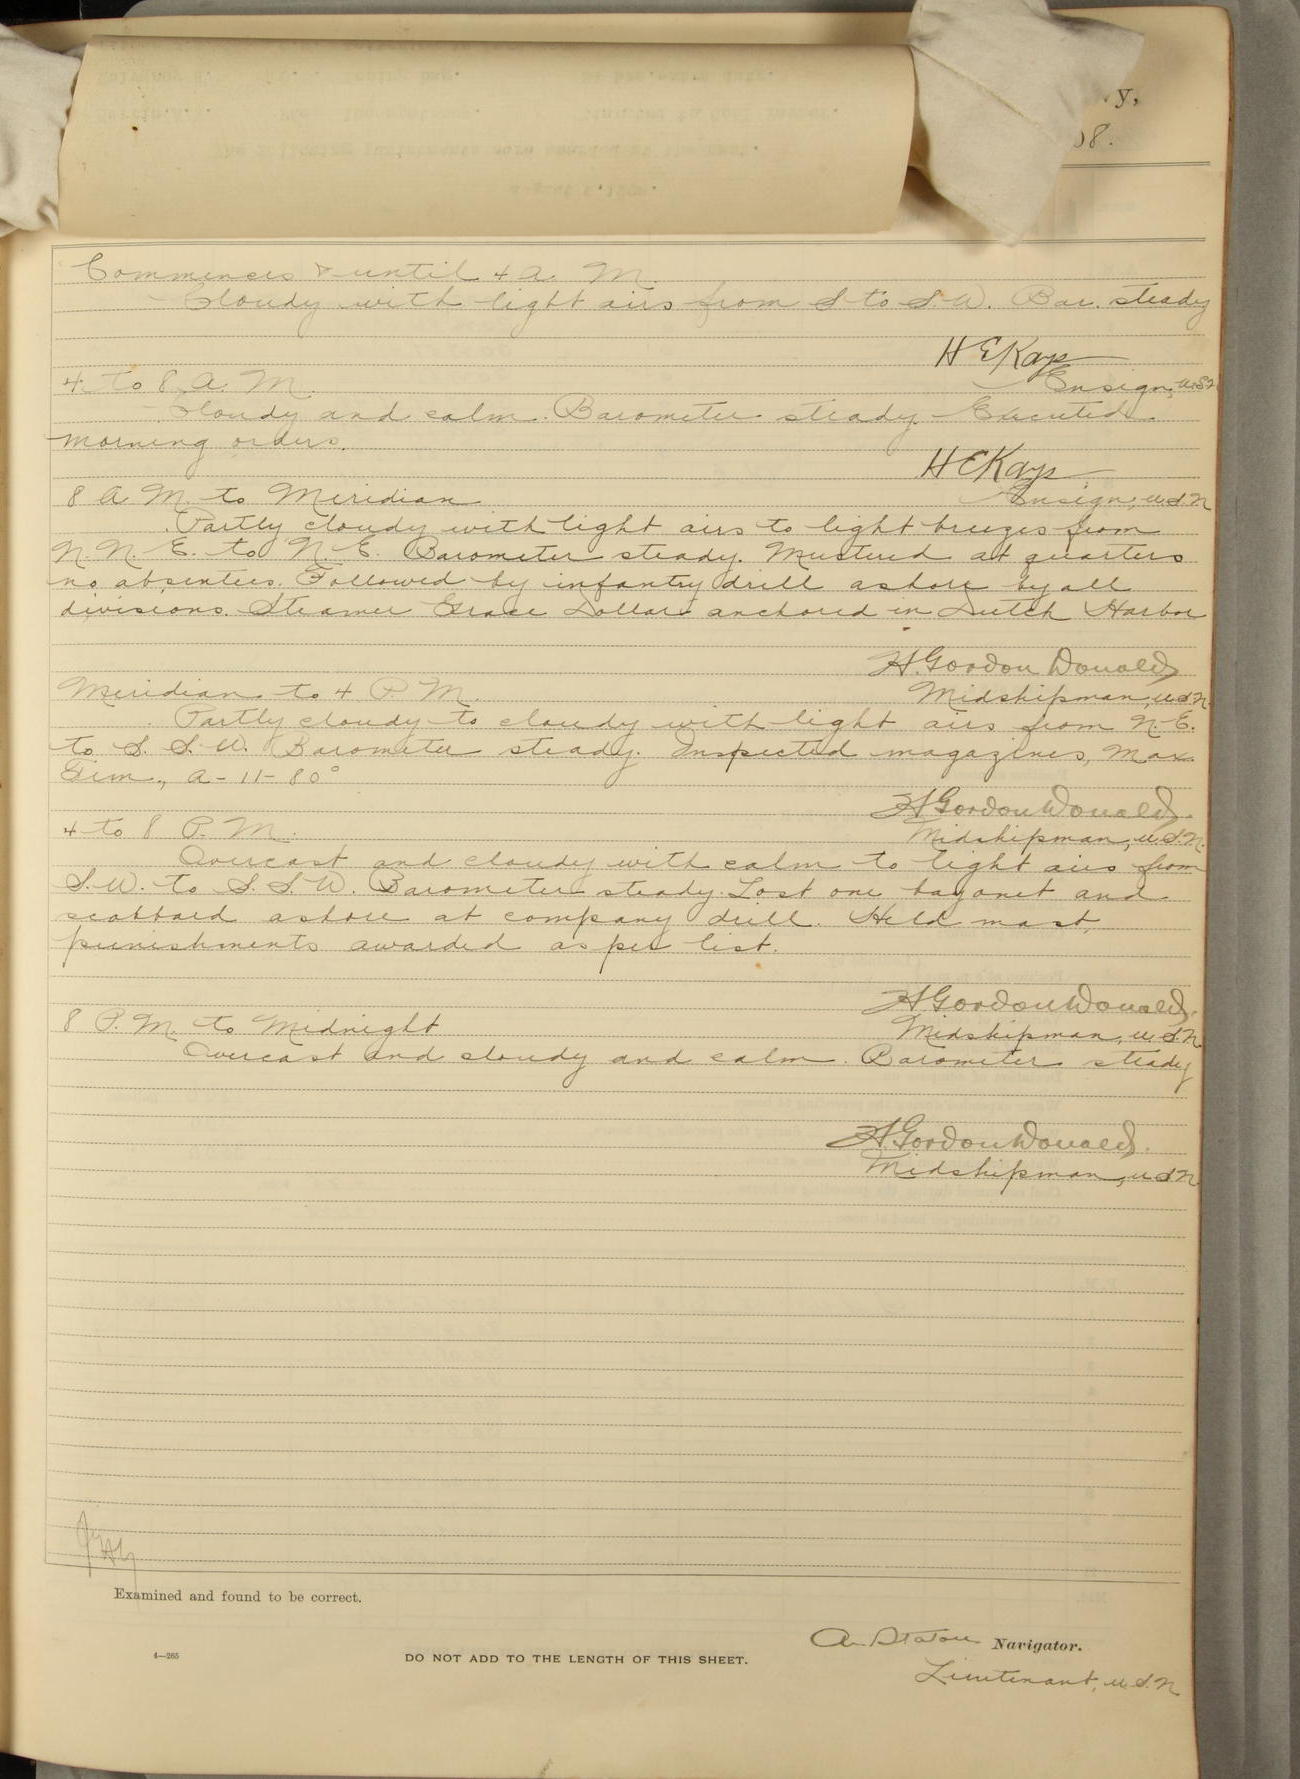 y,
08.
Commences & until 4 a. M.
Cloudy with light airs from S to S.W. Bar. steady
H E Kays
Ensign, U.S.N
4 to 8 A. M.
Cloudy and calm. Barometer steady. Executed
morning orders.
H E Kays
Ensign, U.S.N
8 A M. to Meridian
Partly cloudy with light airs to light breezes from
N.N.E. to N.E. Barometer steady. Mustered at quarters
no absentees. Followed by infantry drill ashore by all
divisions. Steamer Grace Dollar anchored in Dutch Harbor
H. Gordon Donald
Midshipman, U.S.N.
Meridian to 4 P.M.
Partly cloudy to cloudy with light airs from N.E.
to S.S.W. Barometer steady. Inspected magazines, Max
Tem., A-11-80°
H Gordon Donald.
Midshipman, U.S.N.
4 to 8 P.M.
Overcast and cloudy with calm to light airs from
S.W. to S.S.W. Barometer steady. Lost one bayonet and
scabbard ashore at company drill. Held mast,
punishments awarded as per list.
H Gordon Donald.
Midshipman, U.S.N.
8 P.M. to Midnight
Overcast and cloudy and calm. Barometer steady
H. Gordon Donald.
Midshipman, U.S.N
Examined and found to be correct.
A. Staton Navigator.
4—265 DO NOT ADD TO THE LENGTH OF THIS SHEET.
Lieutenant, U.S.N